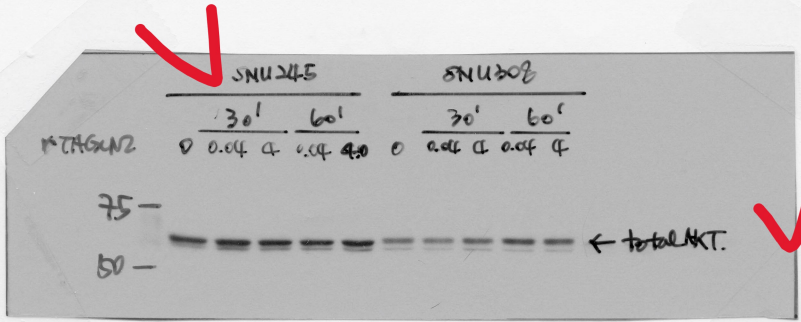 SNU245 SNU308
30' 60' 30' 60'
0 0.04 4 0.04 4.0 0 0.04 4 0.04 4
75
50
← total AKT.